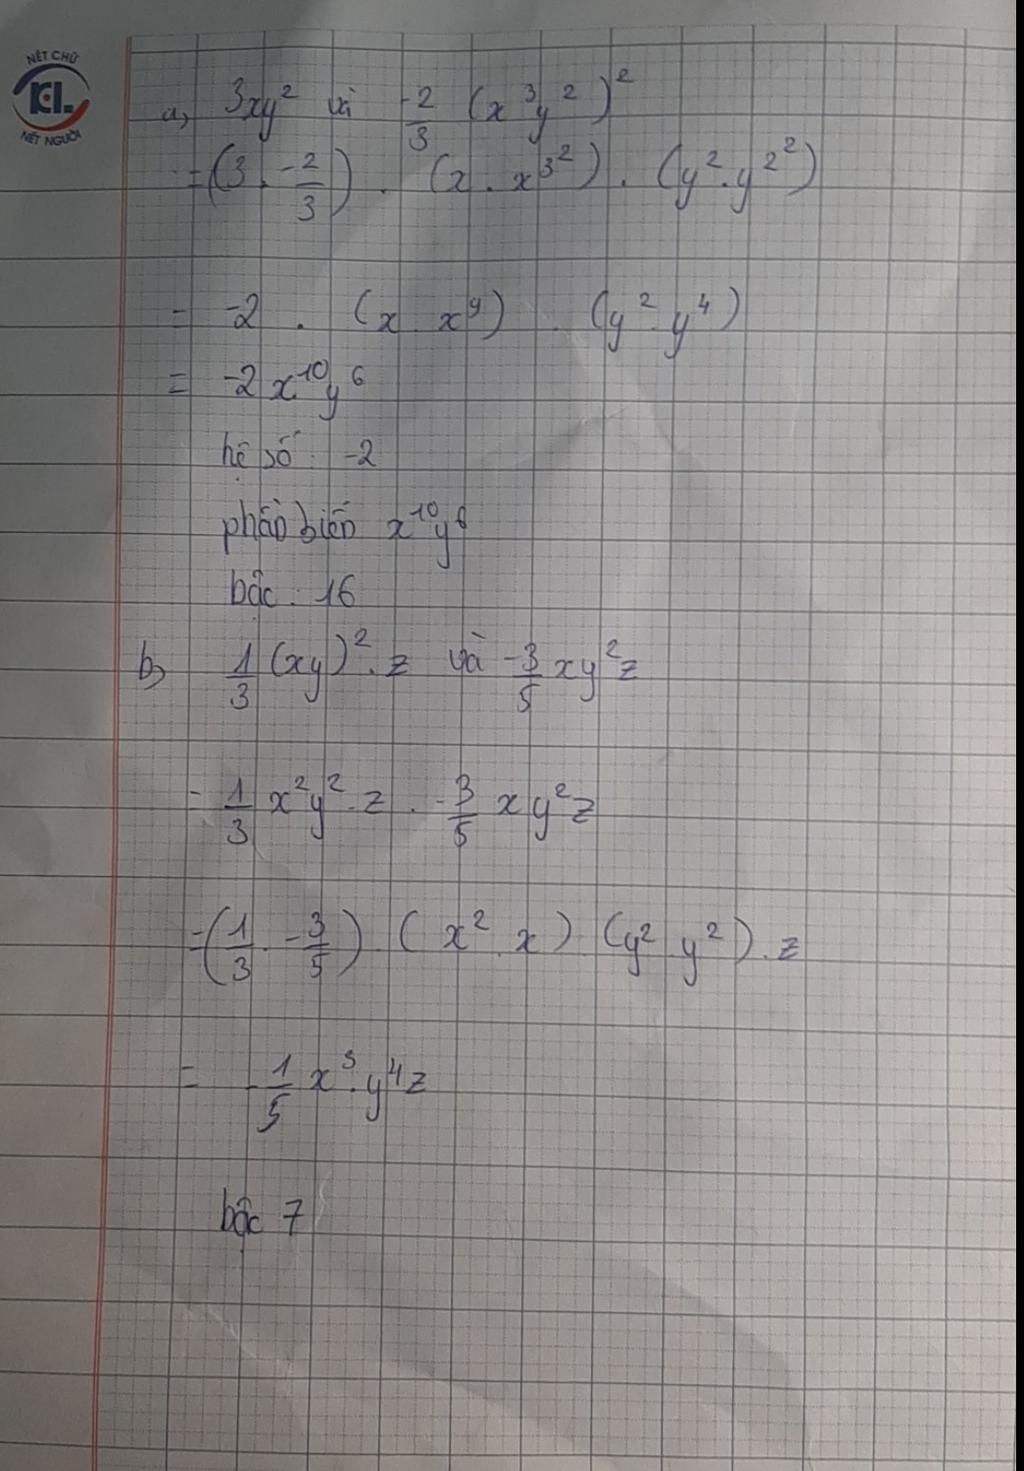 NÉT CHỮ
KL.
NẾT NGƯỜI
a, 3xy² và -2/3 (x³y²)²
= (3 . -2/3) . (x . x³²) . (y² . y²²)
= -2 . (x . x⁹) . (y² . y⁴)
= -2x¹⁰y⁶
hệ số : -2
phần biến x¹⁰y⁶
bậc : 16
b, 1/3 (xy)² . z và -3/5 xy²z
= 1/3 x²y² . z . -3/5 xy²z
= (1/3 . -3/5) . (x² . x) (y² . y²) . z
= -1/5 x³ . y⁴z
bậc 7